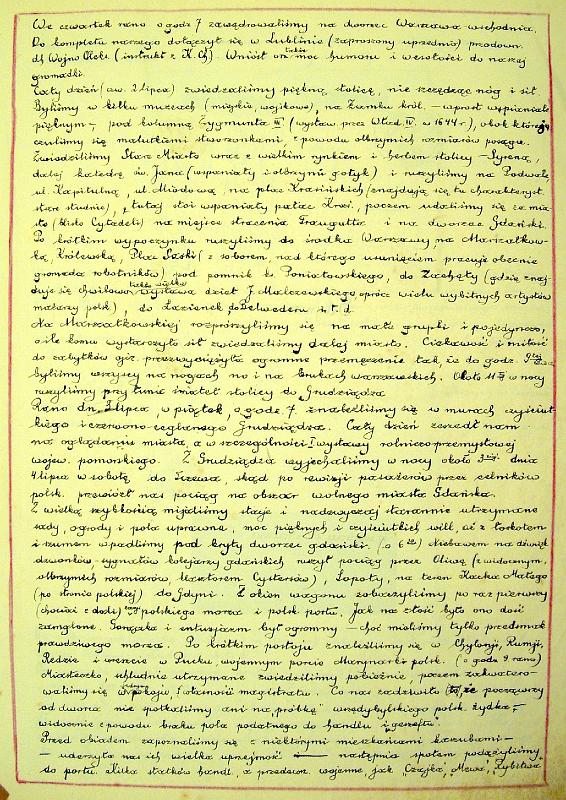 We czwartek rano o godz 7 zawędrowaliśmy na dworzec Warszawa-wschodnia.
Do kompletu naszego dołączył się w Lublinie (zaproszony uprzednio) przodown.
dh Wojno Aleks. (instrukt z K.Ch.) Wniósł on także moc humoru i wesołości do naszej
gromadki.
Cały dzień (czw. 2 lipca) zwiedzaliśmy piękną stolicę, nie szczędząc nóg i sił
Byliśmy w kilku muzeach (miejskie, wojskowe), na Zamku król. - wprost wspaniale
pięknym -, pod kolumną Zygmunta III (wystaw. przez Wład. IV. w 1644 r), obok której
czuliśmy się malutkiemi stworzonkami, z powodu olbrzymich rozmiarów posągu.
Zwiedziliśmy Stare Miasto wraz z wielkim rynkiem i herbem stolicy - Syreną,
dalej katedrę św. Jana (wspaniały i olbrzymi gotyk) i ruszyliśmy na Podwale,
ul. Kapitulną, ul. Miodową, na plac Krasińskich (znajdują się tu charakteryst.
stare studnie), tutaj stoi wspaniały pałac Kras., poczem udaliśmy się za mia-
sto (blisko Cytadeli) na miejsce stracenia Traugutta i na dworzec Gdański.
Po krótkim wypoczynku ruszyliśmy do środka Warszawy na Marszałkow-
ską, Królewską, Plac Saski (z soborem, nad którego usunięciem pracuje obecnie
gromada robotników) pod pomnik ks. Poniatowskiego, do Zachęty (gdzie znaj-
duje się chwilowo także wielka wystawa dzieł J. Malczewskiego, oprócz wielu wybitnych artystów
malarzy polsk.), do Łazienek, do Belwederu i.t.d.
Na Marszałkowskiej rozproszyliśmy się na małe grupki i pojedynczo,
o ile komu wystarczyło sił zwiedzaliśmy dalej miasto. Ciekawość i miłość
do zabytków ojcz. przezwyciężyła ogromne przemęczenie tak, że do godz. 9tej
byliśmy wszyscy na nogach no i na brukach warszawskich. Około 11 w nocy
ruszyliśmy przy łunie świateł stolicy do Grudziądza
Rano dn. 3 lipca, w piątek, o godz. 7. znaleźliśmy się w murach czyściut-
kiego i czerwono-ceglanego Grudziądza. Cały dzień zeszedł nam
na oglądaniu miasta, a w szczególności I wystawy rolniczo przemysłowej
wojew. pomorskiego. Z Grudziądza wyjechaliśmy w nocy około 3ciej. dnia
4 lipca w sobotę do Tczewa, skąd po rewizji pasażerów przez celników
polsk. przewiózł nas pociąg na obszar wolnego miasta Gdańska.
Z wielką szybkością mijaliśmy stacje i nadzwyczaj starannie utrzymane
sady, ogrody i pola uprawne, moc pięknych i czyściutkich will, aż z łoskotem
i szumem wpadliśmy pod kryty dworzec gdański. (o 6) Niebawem na dźwięk
dzwonków-sygnałów kolejarzy gdańskich ruszył pociąg przez Oliwę (z widocznym,
olbrzymich rozmiarów, klasztorem Cystersów), Sopoty, na teren Kacka Małego
(po stronie polskiej) do Gdyni. Z okien wagonu zobaczyliśmy po raz pierwszy
(chociaż z dali) polskiego morza i polsk. portu. Jak na złość było ono dość
zamglone. Gorączka i entuzjazm był ogromny - choć mieliśmy tylko przedsmak
prawdziwego morza. Po krótkim postoju znaleźliśmy się w Chylonji, Rumji,
Redzie i wreszcie w Pucku, wojennym porcie Marynarki polsk. (o godz 9 rano)
Miasteczko, schludnie utrzymane zwiedziliśmy pobieżnie, poczem zakwatero-
waliśmy się w pokoju, własność magistratu. Co nas zadziwiło to, że począwszy
od dworca nie spotkaliśmy ani na „próbkę" wszędybylskiego polsk. żydka, -
widocznie z powodu braku pola podatnego do handlu i „geszeftu".
Przed obiadem zapoznaliśmy się z niektórymi mieszkańcami kaszubami -
uderzyła nas ich wielka uprzejmość - następnie społem podążyliśmy
do portu. Kilka statków handl. a przedewsz. wojenne, jak „Czajka", „Mewa", „Rybitwa"